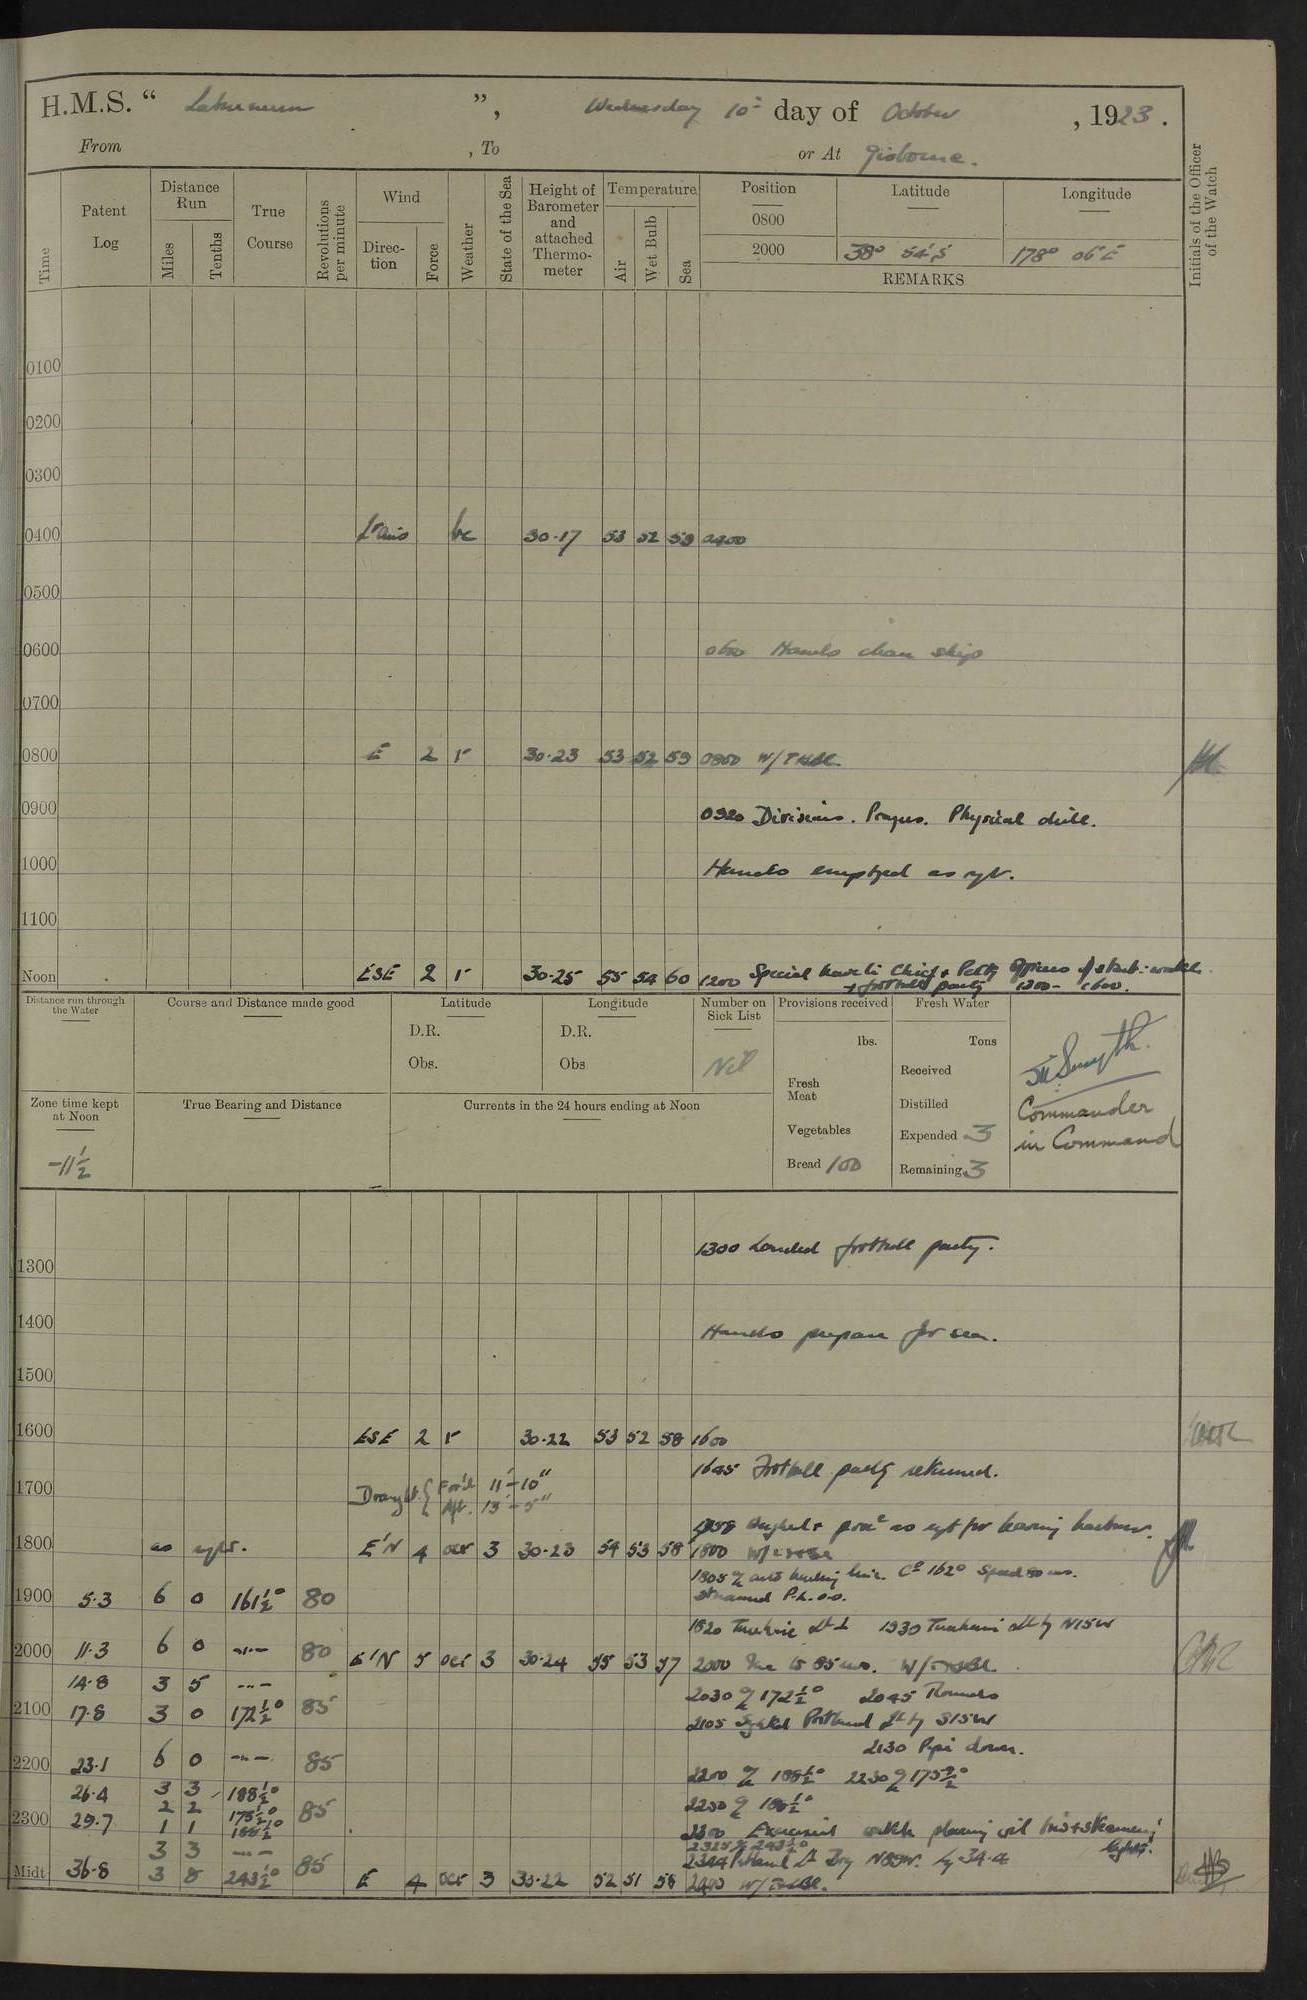 H.M.S. “ Laburnum ”, Wednesday 10th day of October, 1923.
From , To or At Gisborne.
Time
Patent Log
Distance Run
Miles
Tenths
True Course
Revolutions per minute
Wind
Direc-tion
Force
Weather
State of the Sea
Height of Barometer and attached Thermo-meter
Temperature
Air
Wet Bulb
Sea
Position Latitude Longitude
0800
2000 38° 54' S 178° 06' E
REMARKS
Initials of the Officer of the Watch
0100
0200
0300
0400 Lt airs bc 30.17 53 52 59 0400
0500
0600 0600 Hands clean ship
0700
0800 E 2 r 30.23 53 52 59 0800
0900 0920 Divisions. Prayers. Physical drill.
1000 Hands employed as reqt.
1100
Noon ESE 2 r 30.25 55 54 60 1200 Special leave to Chief & Petty Officers of starb: watch
& football party 1300 - 1600.
Distance run through the Water
Course and Distance made good
Latitude
D.R.
Obs.
Longitude
D.R.
Obs
Number on Sick List
Nil
Provisions received
lbs.
Fresh Meat
Vegetables
Bread 100
Fresh Water
Tons
Received
Distilled
Expended 3
Remaining 3
Smyth.
Commander
in Command
Zone time kept at Noon
-11 1/2
True Bearing and Distance
Currents in the 24 hours ending at Noon
1300 1300 Landed football party.
1400 Hands prepare for sea.
1500
1600 ESE 2 r 30.22 53 52 58 1600
1645 Football party returned.
1700 Draught { For'd 11'-10"
Aft. 13'-5"
Weighed & proc'd as reqt for leaving harbour.
1800 as reqte. E'N 4 ocr 3 30.23 54 53 58 1800
1805 a/c Co 162° Speed 80 revs.
Streamed P.L. 0.0.
1900 5.3 6 0 161 1/2° 80
1930
2000 11.3 6 0 -..- 80 E'N 5 ocr 3 30.24 55 53 57 2000 Inc to 85 revs.
14.8 3 5 -..-
2030 a/c 172 1/2° 2045 Rounds
2100 17.8 3 0 172 1/2° 85
2105 Sighted Portland Lt by S15W
2130 Pipe down.
2200 23.1 6 0 -..- 85
2200 a/c 188 1/2° 2230 a/c
26.4 3 3 188 1/2°
2 2 175 1/2° 85
2250 a/c 188 1/2°
2300 29.7 1 1 188 1/2°
2300 Exercised watch placing oil & steaming lights.
3 3 -..-
2325 a/c 243 1/2°
2344 Portland Lt Brg
Midt 36.8 3 5 243 1/2° 85 E 4 ocr 3 30.22 52 51 58 2400